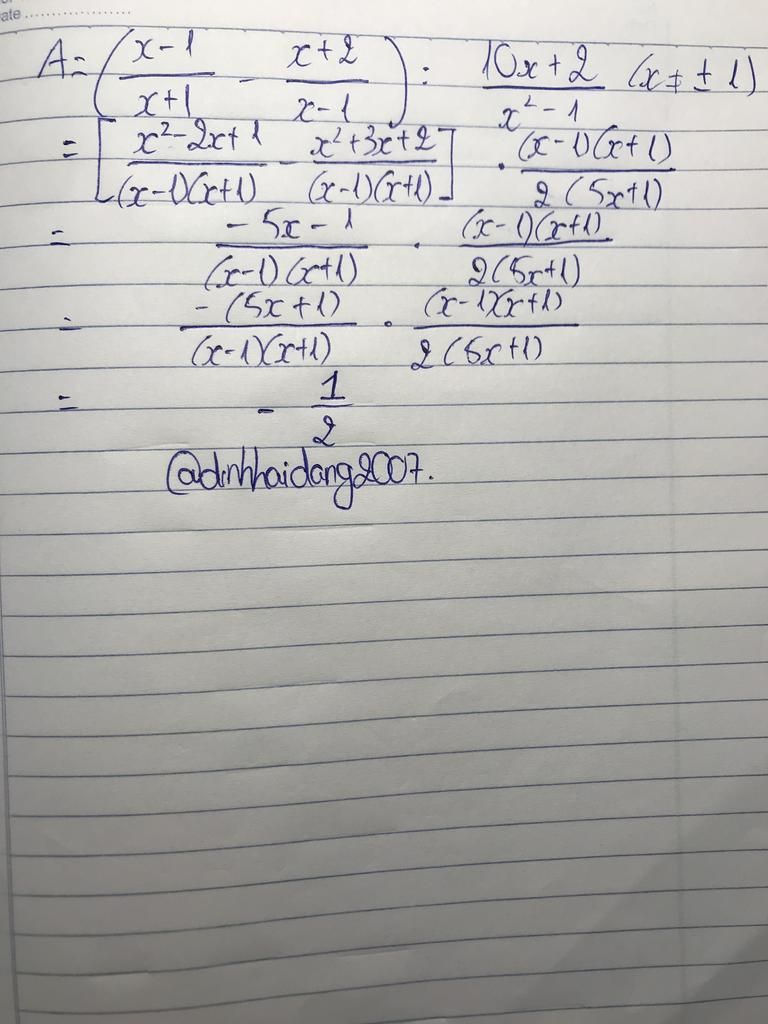 ate ....................
A = ( (x-1)/(x+1) - (x+2)/(x-1) ) : (10x+2)/(x²-1) (x ≠ ± 1)
= [ (x²-2x+1)/((x-1)(x+1)) - (x²+3x+2)/((x-1)(x+1)) ] . ((x-1)(x+1))/(2(5x+1))
= (-5x-1)/((x-1)(x+1)) . ((x-1)(x+1))/(2(5x+1))
= (-(5x+1))/((x-1)(x+1)) . ((x-1)(x+1))/(2(5x+1))
= - 1/2
@dinhhaidang2007.